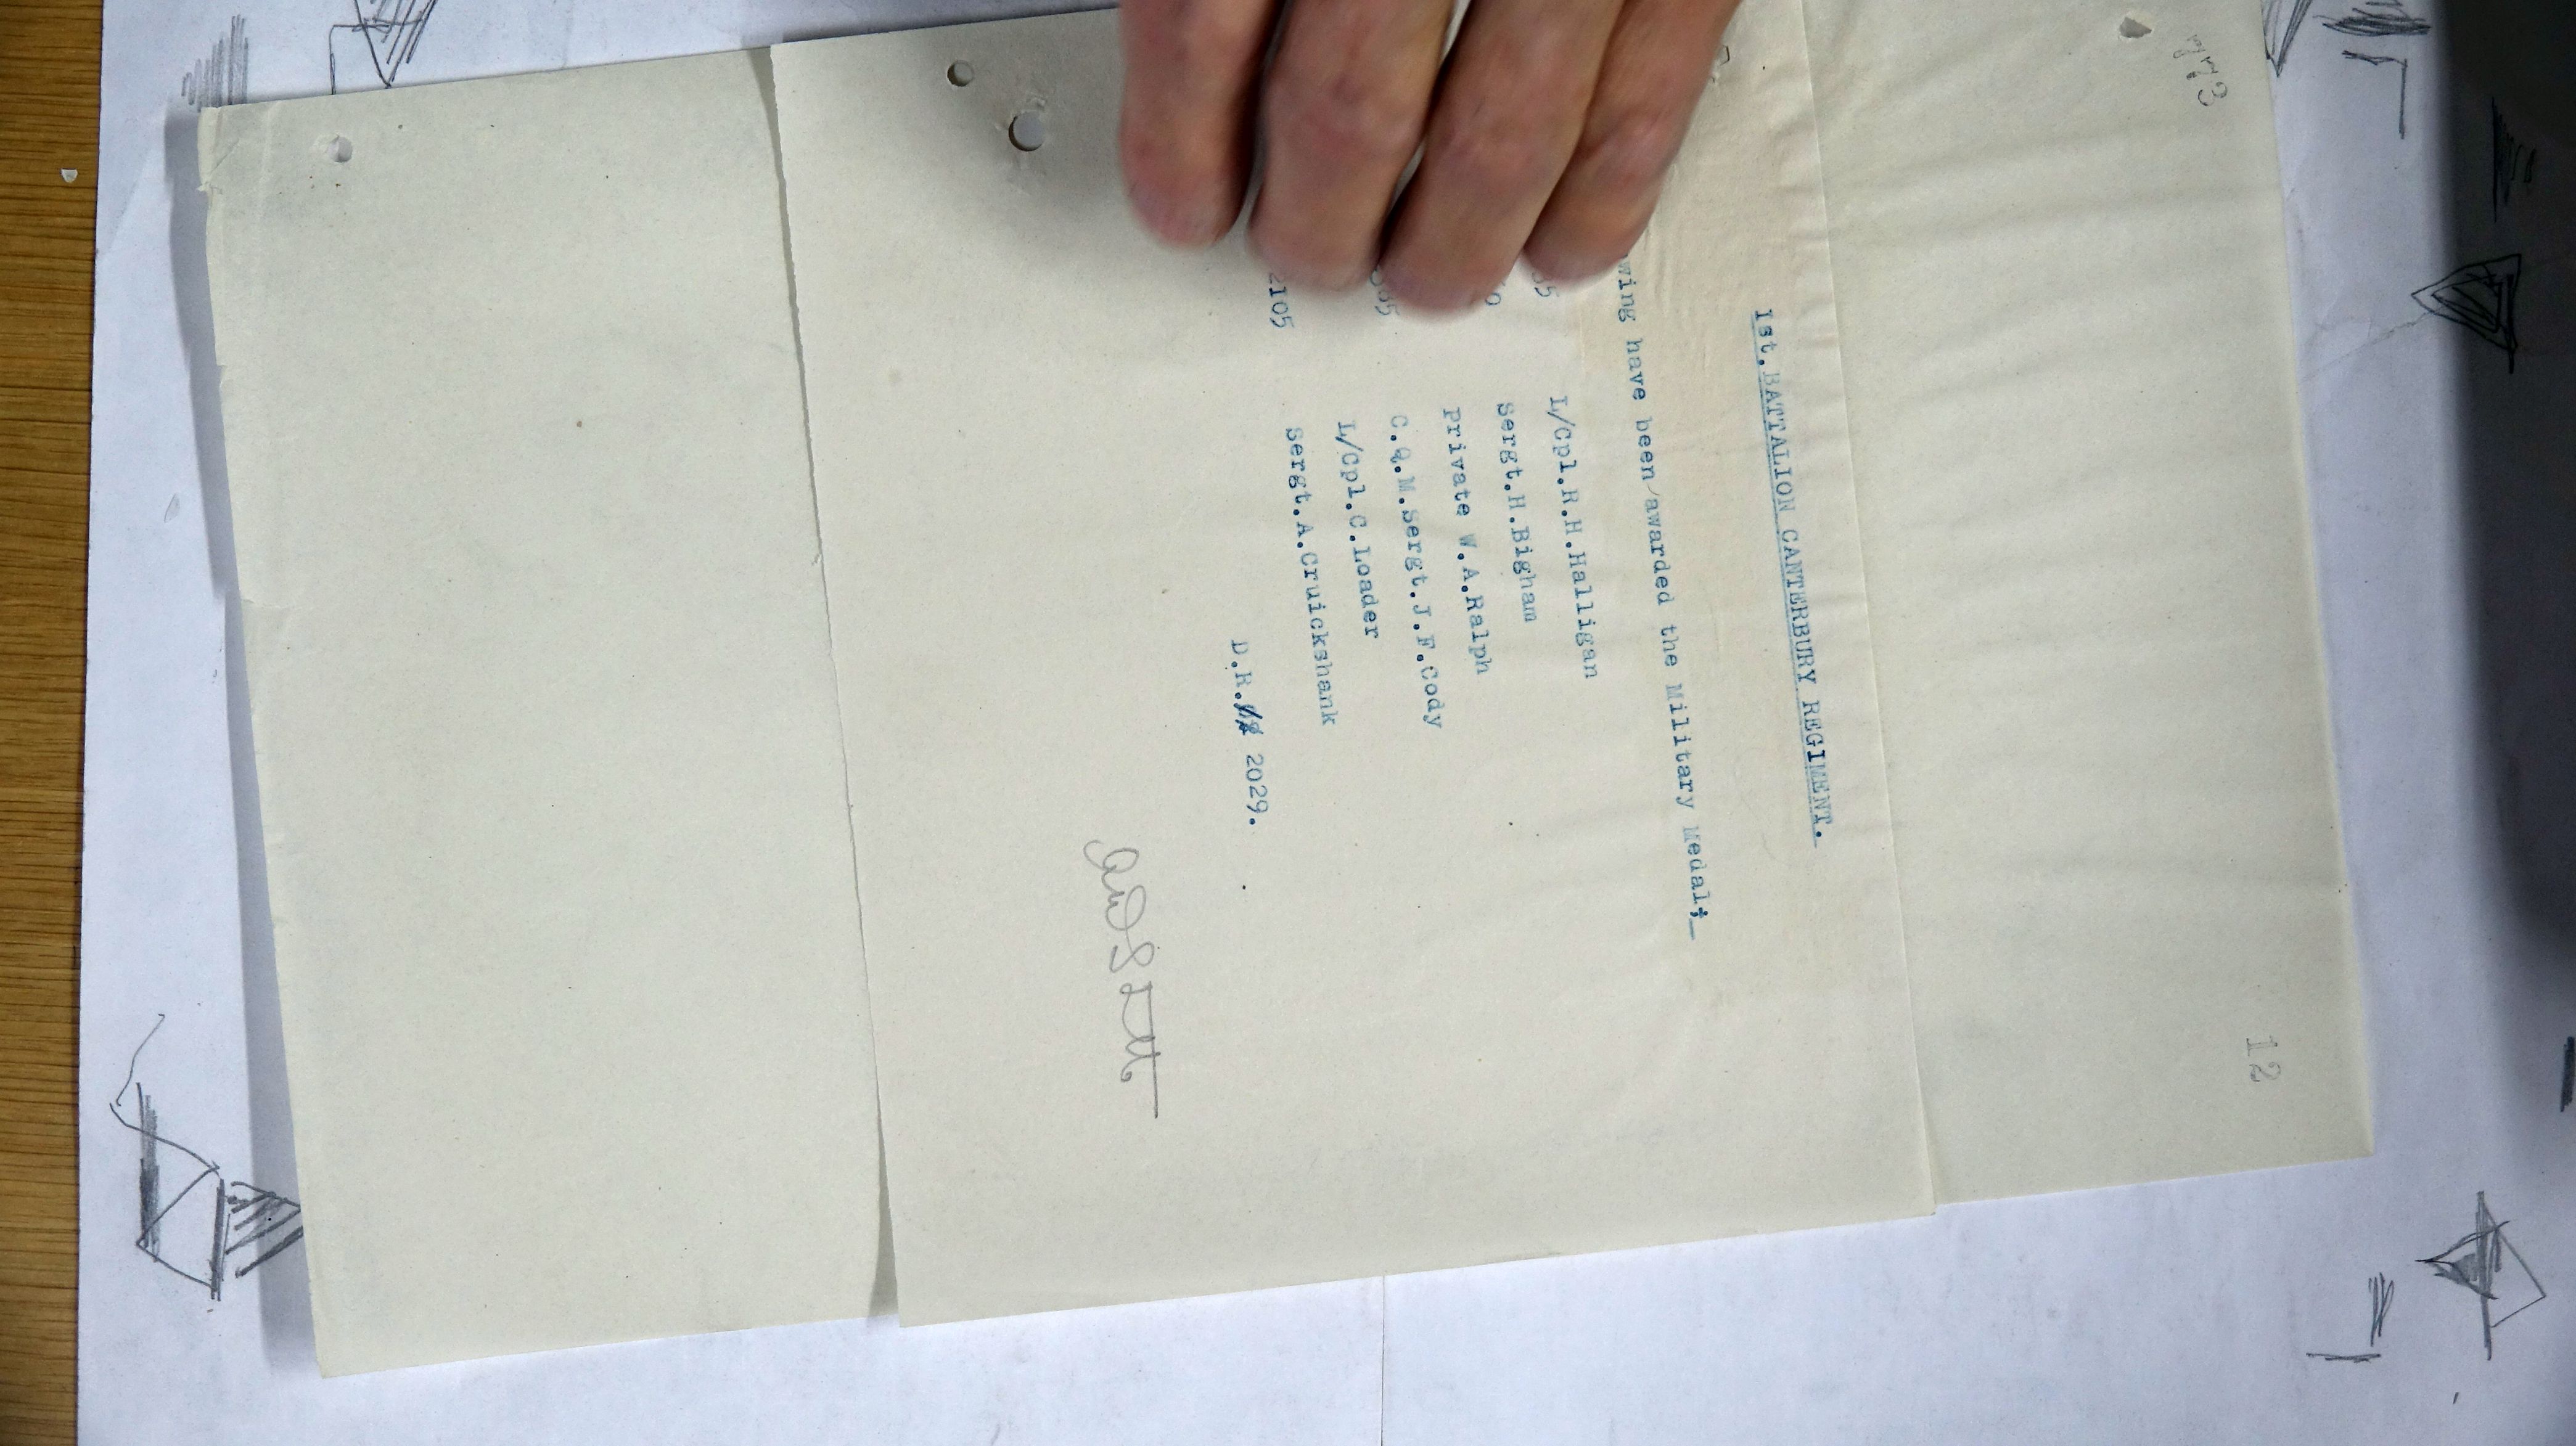 773
12
1st.BATTALION CANTERBURY REGIMENT.
wing have been awarded the Military Medal;_
35 L/Cpl.R.H.Halligan
0 Sergt.H.Bigham
Private W.A.Ralph
C.Q.M.Sergt.J.F.Cody
L/Cpl.C.Loader
2105 Sergt.A.Cruickshank
D.R. 2029.